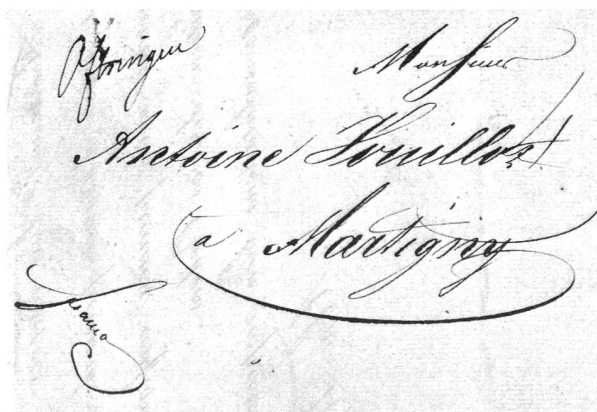 Oftringen
Monsieur
Antoine Vouilloz
a Martigny
franco